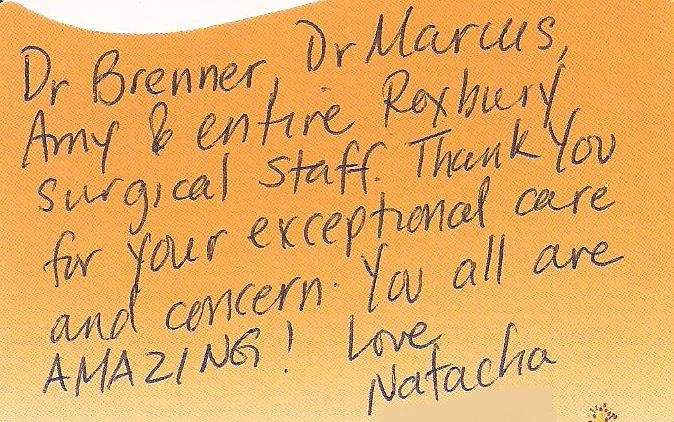 Dr Brenner, Dr Marcus,
Amy & entire Roxbury
surgical staff. Thank You
for your exceptional care
and concern. You all are
AMAZING! Love
Natacha